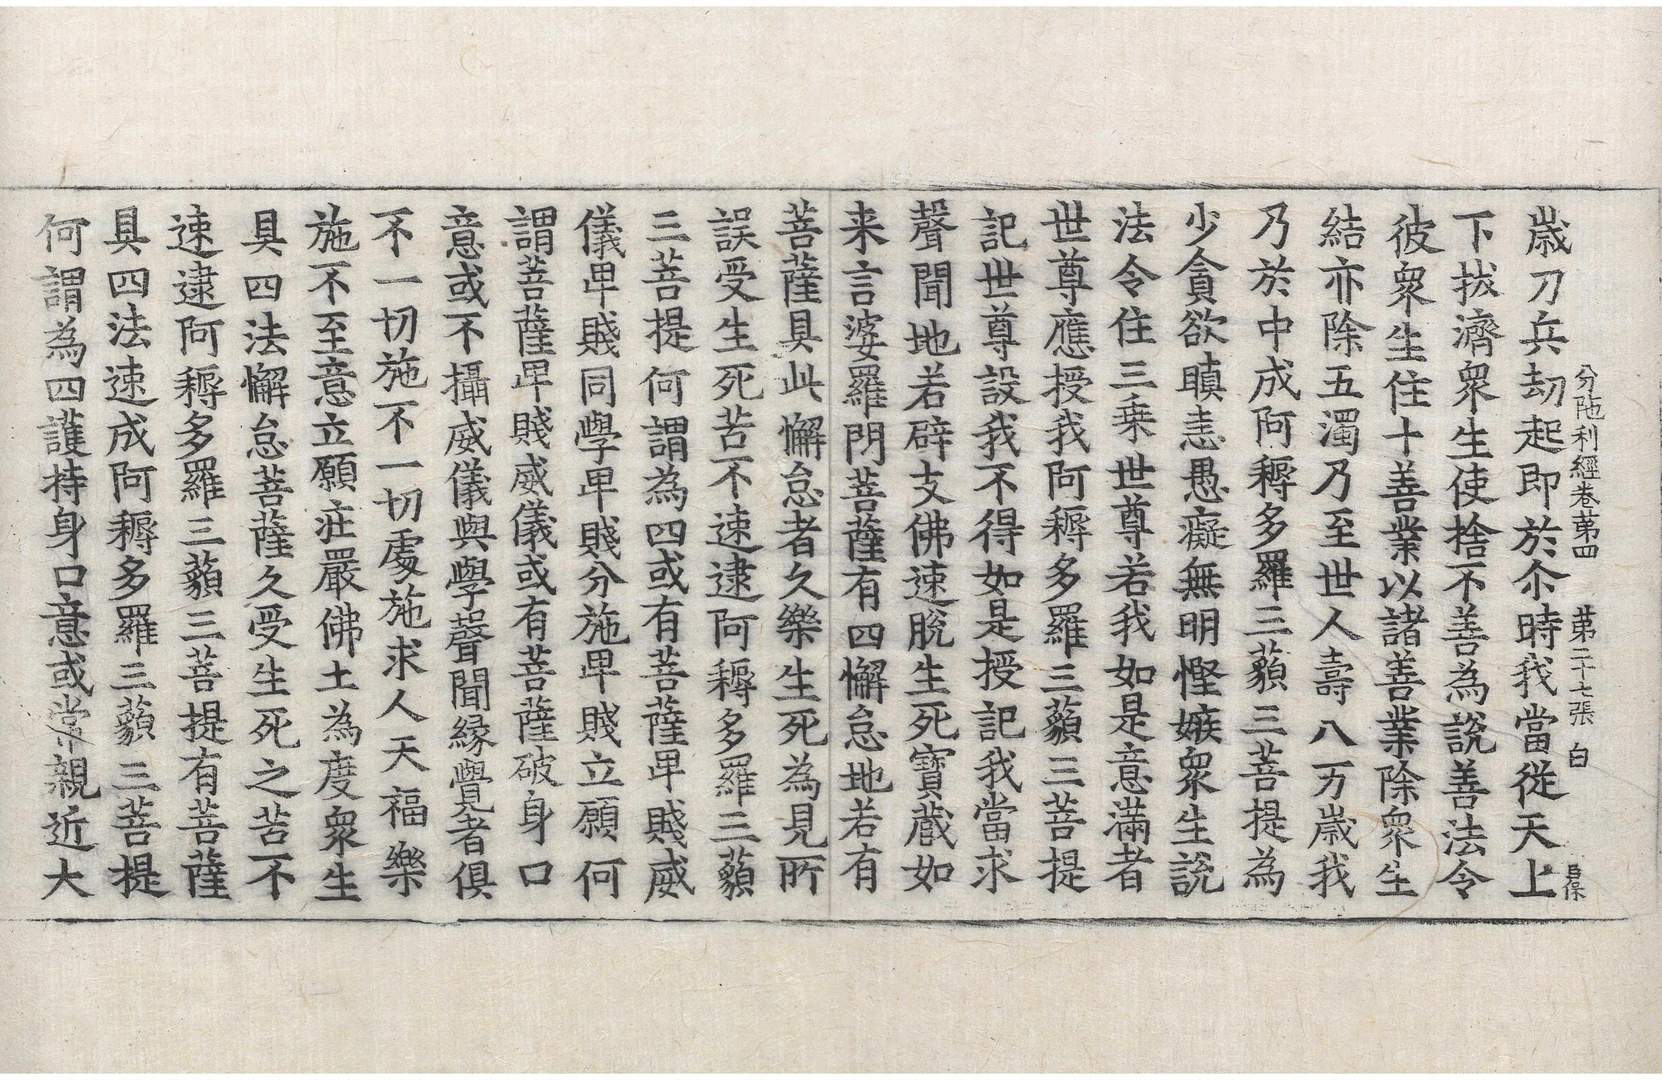 分陁利經卷第四　第二十七張　白
歳刀兵劫起即於尒時我當從天上
下拔濟衆生使捨不善為説善法令
彼衆生住十善業以諸善業除衆生
結亦除五濁乃至世人壽八万歳我
乃於中成阿耨多羅三藐三菩提為
少貪欲瞋恚愚癡無明慳嫉衆生説
法令住三乗世尊若我如是意滿者
世尊應授我阿耨多羅三藐三菩提
記世尊設我不得如是授記我當求
聲聞地若辟支佛速脫生死寶蔵如
来言婆羅門菩薩有四懈怠地若有
菩薩具此懈怠者久樂生死為見所
誤受生死苦不速逮阿耨多羅三藐
三菩提何謂為四或有菩薩卑賤威
儀卑賤同學卑賤分施卑賤立願何
謂菩薩卑賤威儀或有菩薩破身口
意或不攝威儀與學聲聞縁覺者俱
不一切施不一切處施求人天福樂
施不至意立願荘嚴佛土為度衆生
具四法懈怠菩薩久受生死之苦不
速逮阿耨多羅三藐三菩提有菩薩
具四法速成阿耨多羅三藐三菩提
何謂為四護持身口意或常親近大